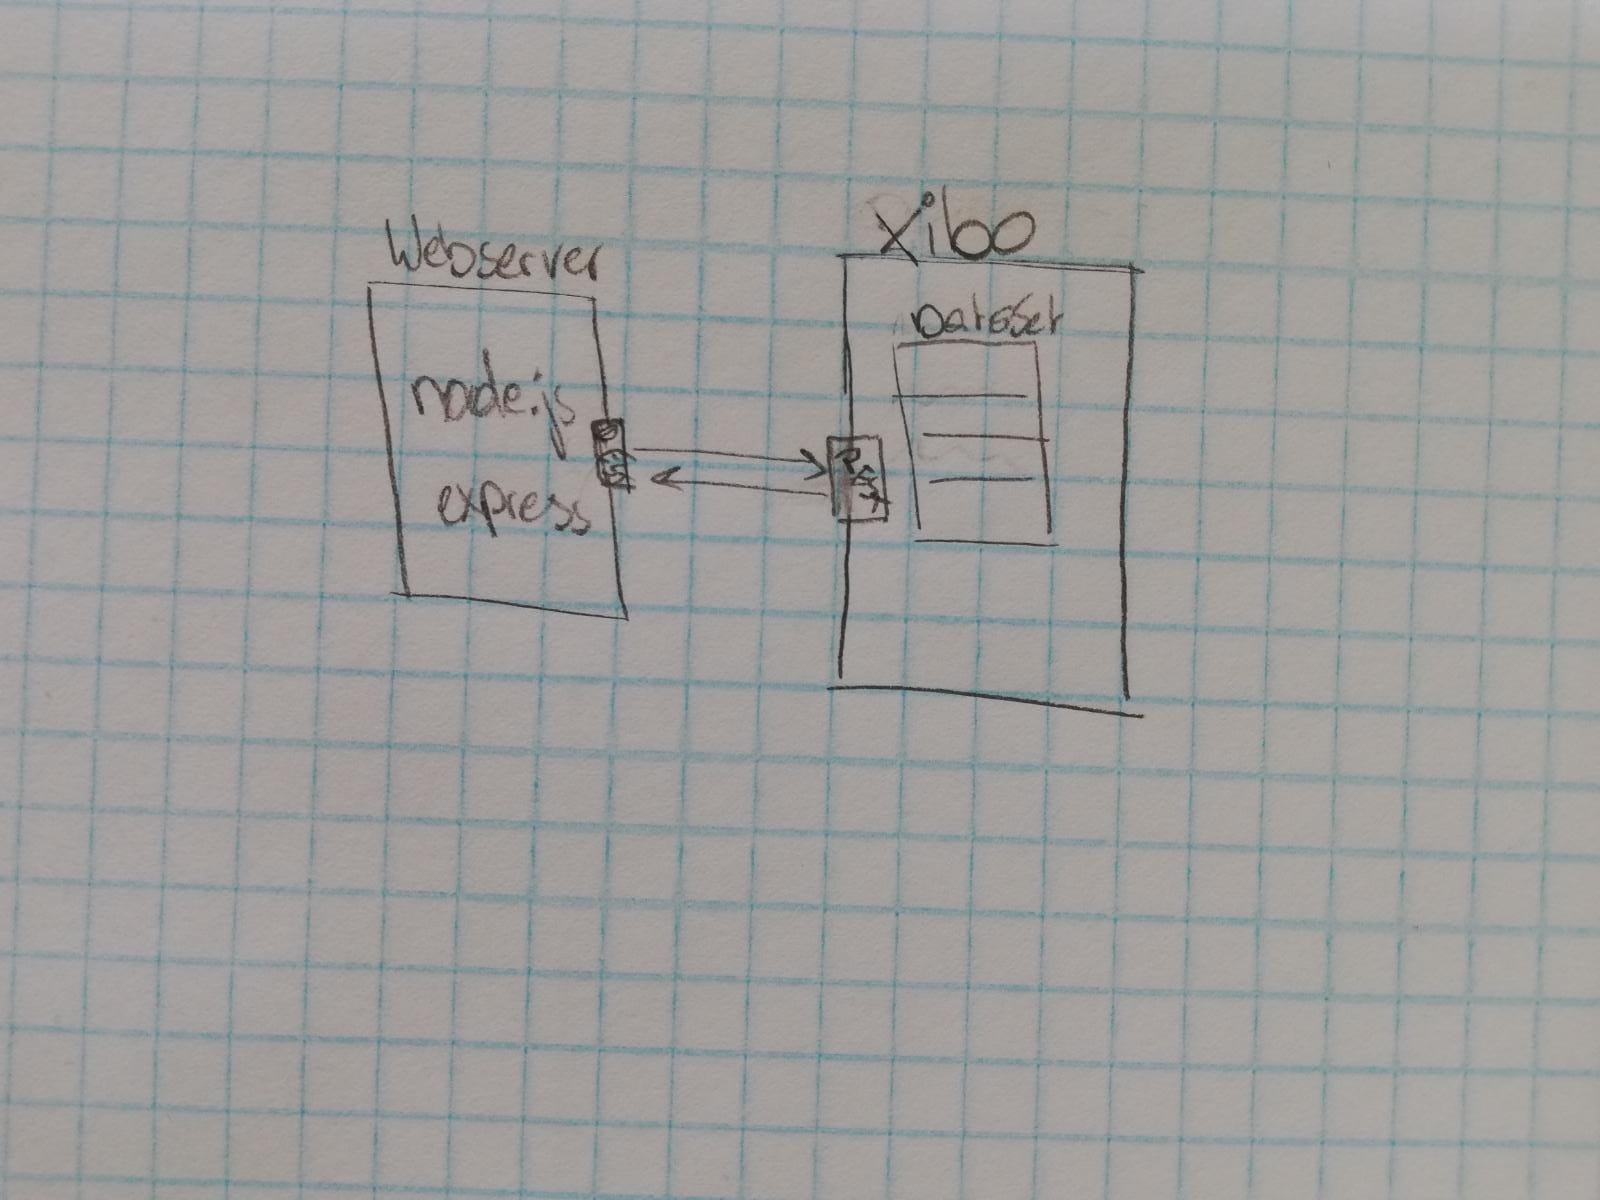 Webserver
node.js
express
Xibo
DataSet